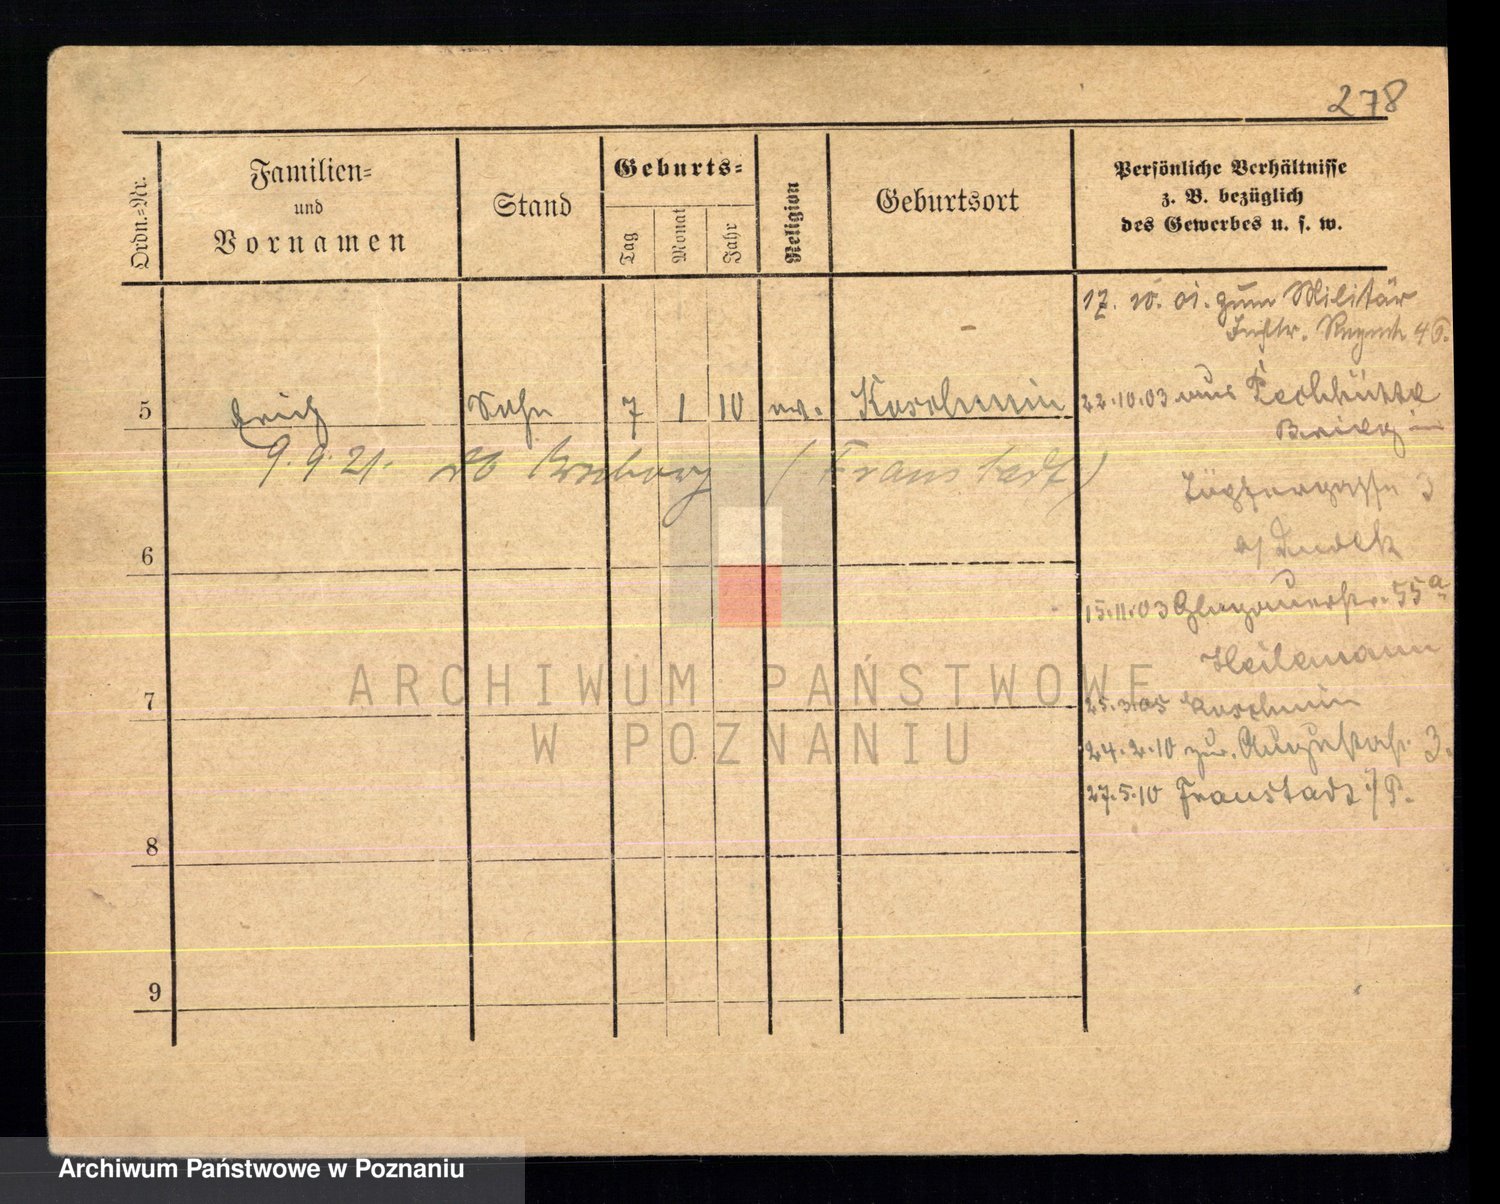 278
Ordn.-Nr.
Familien-
und
Vornamen
Stand
Geburts-
Tag
Monat
Jahr
Religion
Geburtsort
Persönliche Verhältnisse
z. B. bezüglich
des Gewerbes u. s. w.
17. 10. 01. zum Militär
Inftr. Regmt. 46.
5 Erich Sohn 7 1 10 ev. Koschmin
22.10.03 aus
9.9.21. (Fraustadt)
3
6
15.11.03 Glogauerstr. 55a
Heilemann
7
25.3.05 Koschmin
24.2.10 zur. Augustastr. 3.
27.5.10 Fraustadt i/P.
8
9
ARCHIWUM PAŃSTWOWE
W POZNANIU
Archiwum Państwowe w Poznaniu